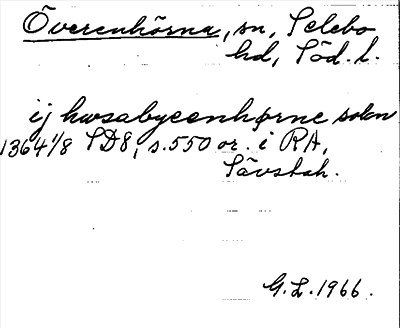 Överenhörna, sn, Selebo
hd, Söd. l.
ij hwsabyeenhørne sokn
1364 1/8 SD8, s. 550 or. i RA,
Sävstah.
G.L. 1966.